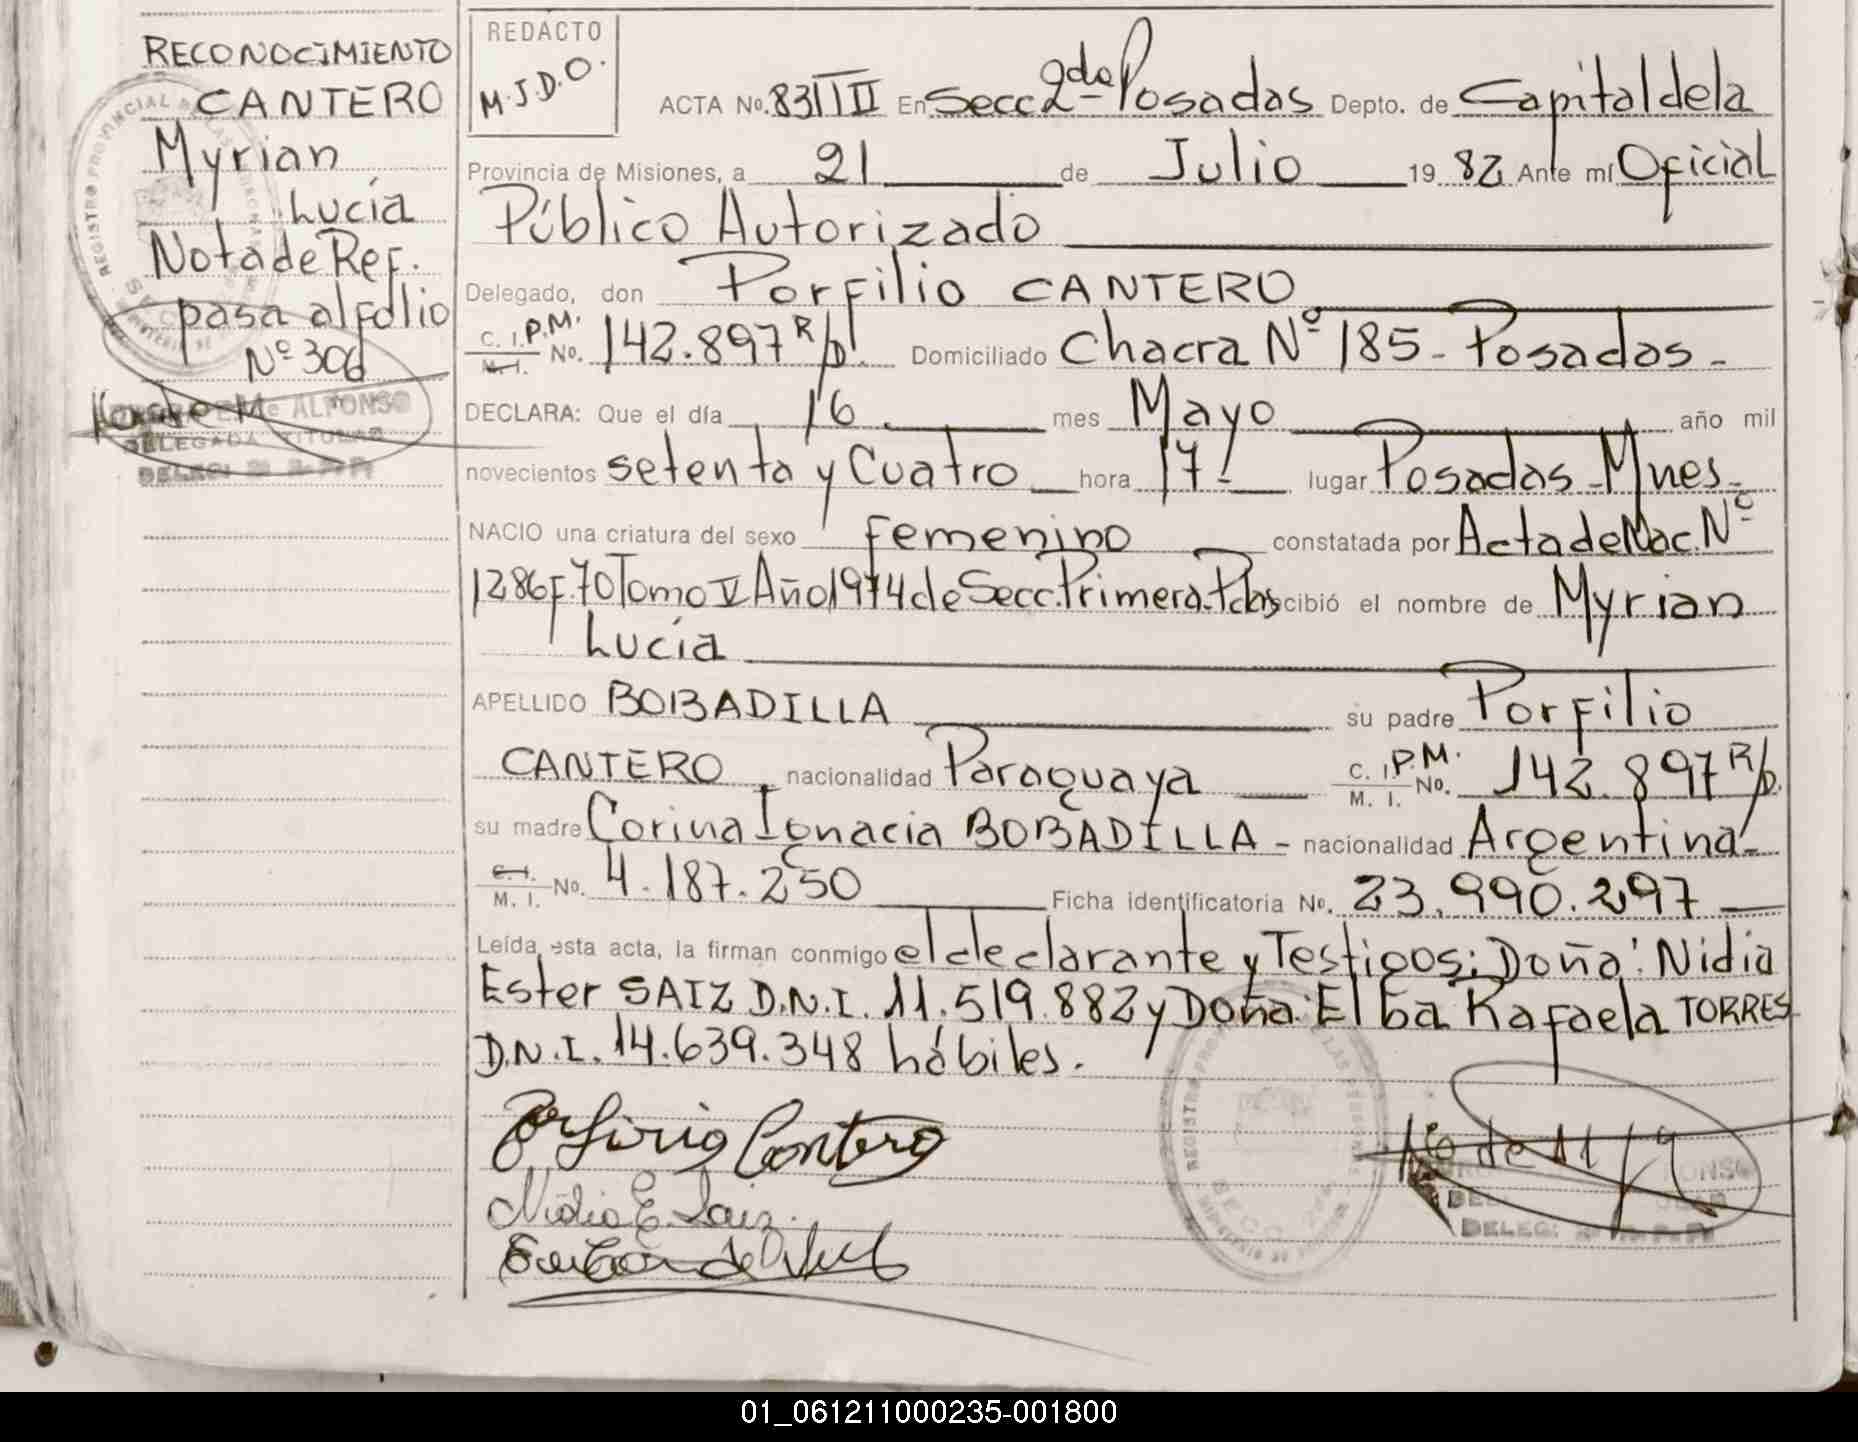 RECONOCIMIENTO
CANTERO
Myrian
Lucía
Nota de Ref.
pasa al folio
Nº 306
ALFONSO
DELEGADA TITULAR
DELEG:
REDACTO
M.J.D.O.
ACTA No. 831 TII En Secc 2da Posadas Depto. de Capital de la
Provincia de Misiones, a 21 de Julio 19 82 Ante mí Oficial
Público Autorizado
Delegado, don Porfilio CANTERO
C. I. P.M. M. I. No. 142.897 R/p. Domiciliado Chacra Nº 185 - Posadas -
DECLARA: Que el día 16 mes Mayo año mil
novecientos setenta y Cuatro hora 17 lugar Posadas - Mnes -
NACIO una criatura del sexo femenino constatada por Acta de Nac. Nº
1286 F. 70 Tomo V Año 1974 de Secc. Primera Pdas cibió el nombre de Myrian
Lucía
APELLIDO BOBADILLA su padre Porfilio
CANTERO nacionalidad Paraguaya C. I. P.M. M. I. No. 142.897 R/p.
su madre Corina Ignacia BOBADILLA - nacionalidad Argentina -
C. I. M. I. No. 4.187.250 Ficha identificatoria No. 23.990.297
Leída esta acta, la firman conmigo el declarante y Testigos: Doña: Nidia
Ester SAIZ D.N.I. 11.519.882 y Doña: Elba Rafaela TORRES
D.N.I. 14.639.348 hábiles.
Porfirio Cantero
Nidia E. Saiz.
DELEG:
01_061211000235-001800